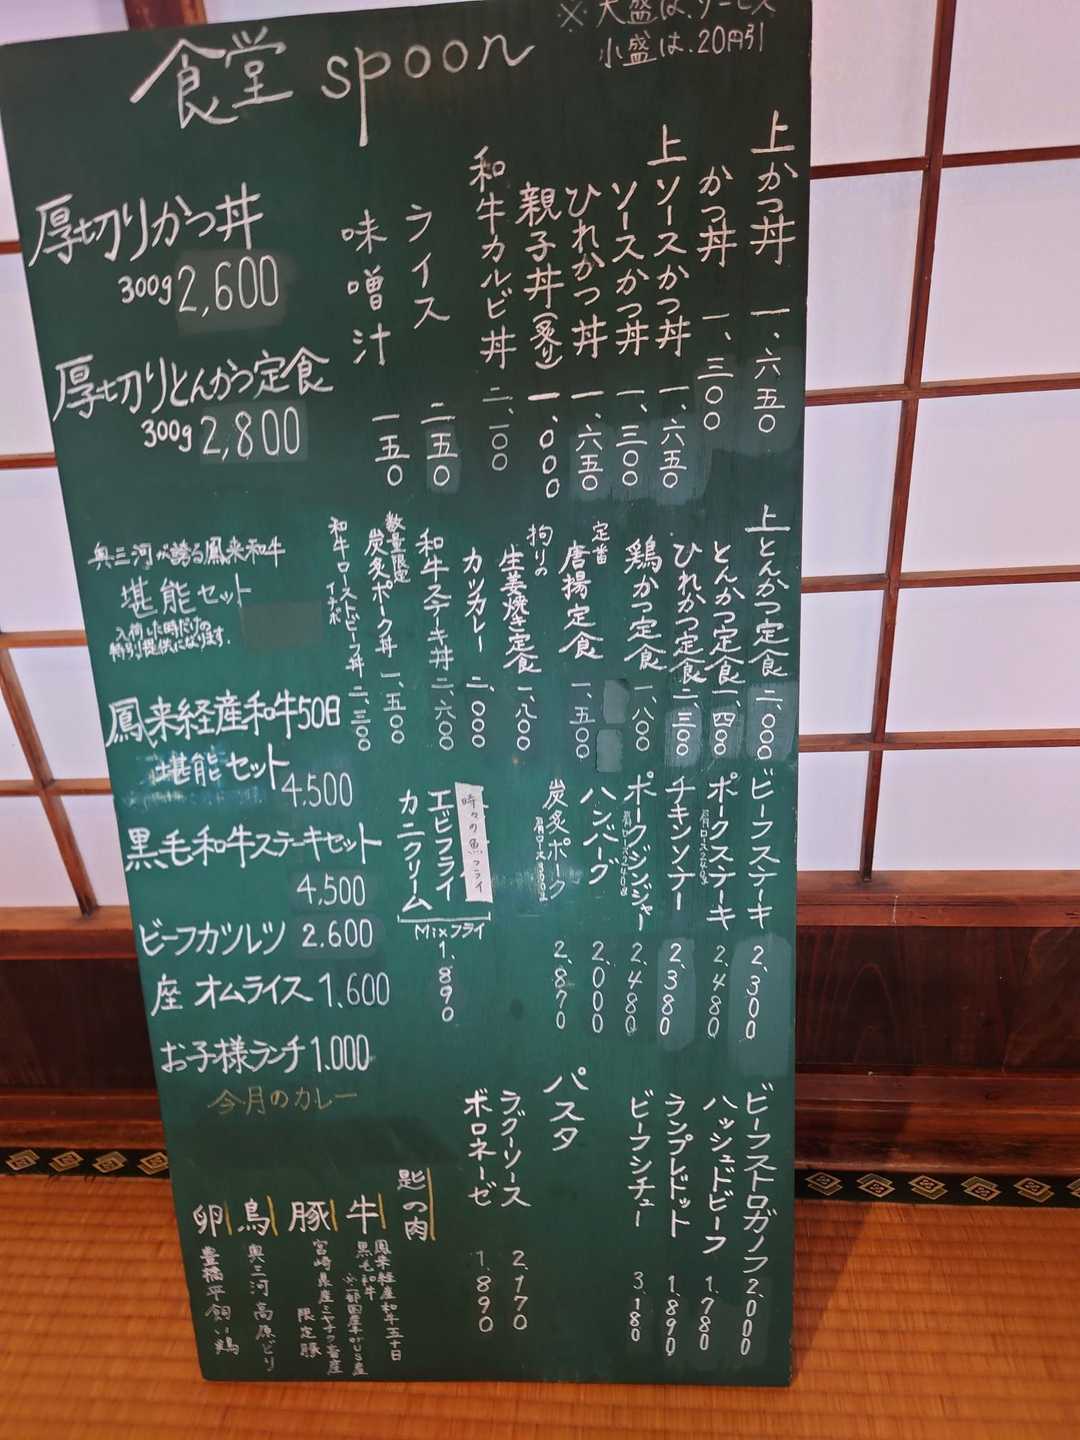 食堂 spoon
※大盛は、サービス
小盛は、20円引
上かつ丼 一、六五〇
かつ丼 一、三〇〇
上ソースかつ丼 一、六五〇
ソースかつ丼 一、三〇〇
ひれかつ丼 一、六五〇
親子丼(炙り) 一、〇〇〇
和牛カルビ丼 二、一〇〇
ライス 二五〇
味噌汁 一五〇
厚切りかつ丼
300g 2,600
厚切りとんかつ定食
300g 2,800
上とんかつ定食 二、〇〇〇
とんかつ定食 一、四〇〇
ひれかつ定食 二、三〇〇
鶏かつ定食 一、八〇〇
定番
唐揚定食 一、五〇〇
拘りの
生姜焼き定食 一、八〇〇
カツカレー 二、〇〇〇
和牛ステーキ丼 二、六〇〇
数量限定
炭炙ポーク丼 一、五〇〇
和牛ローストビーフ丼 二、三〇〇
イチボ
奥三河が誇る鳳来和牛
堪能セット
入荷した時だけの
特別提供になります。
鳳来経産和牛50日
堪能セット
4,500
黒毛和牛ステーキセット
4,500
ビーフカツレツ 2.600
座 オムライス 1,600
お子様ランチ 1.000
今月のカレー
ビーフステーキ 2,300
ポークステーキ 2,480
肩ロース240g
チキンソテー 2,380
ポークジンジャー 2,480
肩ロース240g
ハンバーグ 2,000
炭炙ポーク 2,870
肩ロース300g
時々の魚フライ
エビフライ
カニクリーム
Mixフライ
1.890
ビーフストロガノフ 2,000
ハッシュドビーフ 1,780
ランプレドット 1,890
ビーフシチュー 3,180
パスタ
ラグーソース 2,170
ボロネーゼ 1,890
匙の肉
牛
鳳来経産和牛五十日
黒毛和牛
※一部国産牛orUS産
豚
宮崎県産ミヤチク畜産
限定豚
鳥
奥三河高原どり
卵
豊橋平飼い鶏